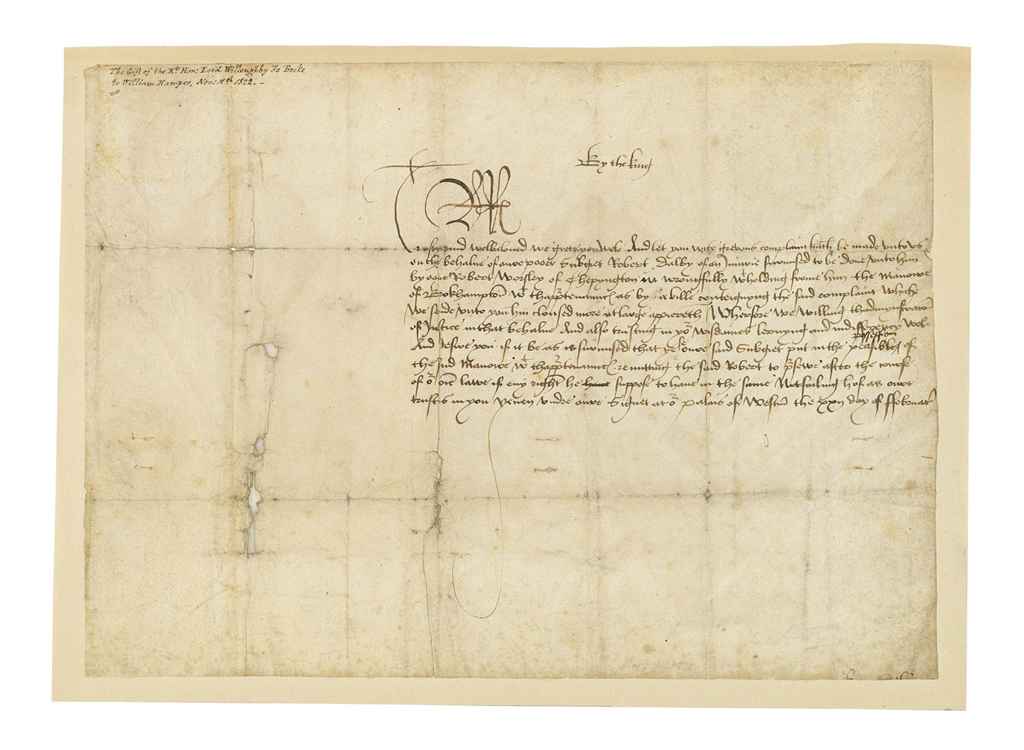 The Gift of the Rt. Hon: Lord Willoughby De Broke
to William Hamper, Nov: 11th 1822. -
By the king
Trusty and welbeloved we grete you wele And let you wite grevous complaint hath be made unto us
on the behalve of oure poore Subget Robert Dalby of an iniurie surmised to be done unto him
by oon Robert Worsley of wrongfully wtholding frome him the Manoire
of Rokhampton wt thapprtenaunc as by a bille conteignyng the said complaint whiche
We sende unto you hin closed more at large appereth Wherfore We willing thadministracion
of Justice in that behalve And also trusting in yor wisdomes lernyng and indifferency Wol
And desire you if it be as is surmised that ye oure said Subget put in the peasible possession of
the said Manoire wt thapprtenaunc remitting the said Robert to prsewe after the cource
of or oure lawe if eny right he suppose to have in the same Not failing hof as oure
trust is in you Yeven undre oure Signet at or Palais of Westmr the xxij day of ffebruar